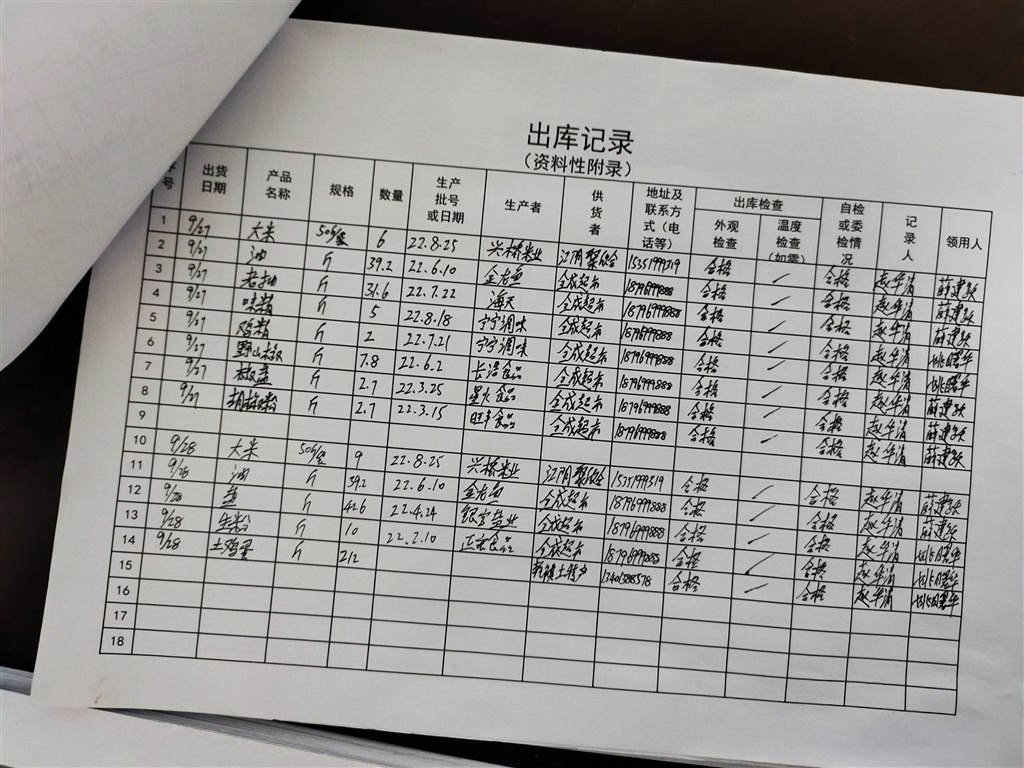 出库记录
（资料性附录）
号 出货日期 产品名称 规格 数量 生产批号或日期 生产者 供货者 地址及联系方式（电话等） 出库检查 外观检查 温度检查（如需） 自检或委检情况 记录人 领用人
1 9/27 大米 50斤/袋 6 22.8.25 兴桥米业 15351999319 合格 / 合格 赵华清 薛建跃
2 9/27 油 斤 39.2 22.6.10 金龙鱼 全成超市 18796999888 合格 / 合格 赵华清 薛建跃
3 9/27 老抽 斤 31.6 22.7.22 海天 全成超市 18796999888 合格 / 合格 赵华清 薛建跃
4 9/27 味精 斤 5 22.8.18 宁宁调味 全成超市 18796999888 合格 / 合格 赵华清 姚曙华
5 9/27 鸡精 斤 2 22.7.21 宁宁调味 全成超市 18796999888 合格 / 合格 赵华清 姚曙华
6 9/27 野山椒 斤 7.8 22.6.2 食品 全成超市 18796999888 合格 / 合格 赵华清 薛建跃
7 9/27 椒盐 斤 2.7 22.3.25 星火食品 全成超市 18796999888 合格 / 合格 赵华清 薛建跃
8 9/27 胡椒粉 斤 2.7 22.3.15 旺丰食品 全成超市 18796999888 合格 / 合格 赵华清 薛建跃
9
10 9/28 大米 50斤/袋 9 22.8.25 兴桥米业 15351999319 合格 / 合格 赵华清 薛建跃
11 9/28 油 斤 39.2 22.6.10 全成超市 18796999888 合格 / 合格 赵华清 薛建跃
12 9/28 盐 斤 42.6 22.4.24 盐业 全成超市 18796999888 合格 / 合格 赵华清 姚曙华
13 9/28 生粉 斤 10 22.2.10 食品 全成超市 18796999888 合格 / 合格 赵华清 姚曙华
14 9/28 土鸡蛋 斤 212 土特产 13401388578 合格 / 合格 赵华清 姚曙华
15
16
17
18